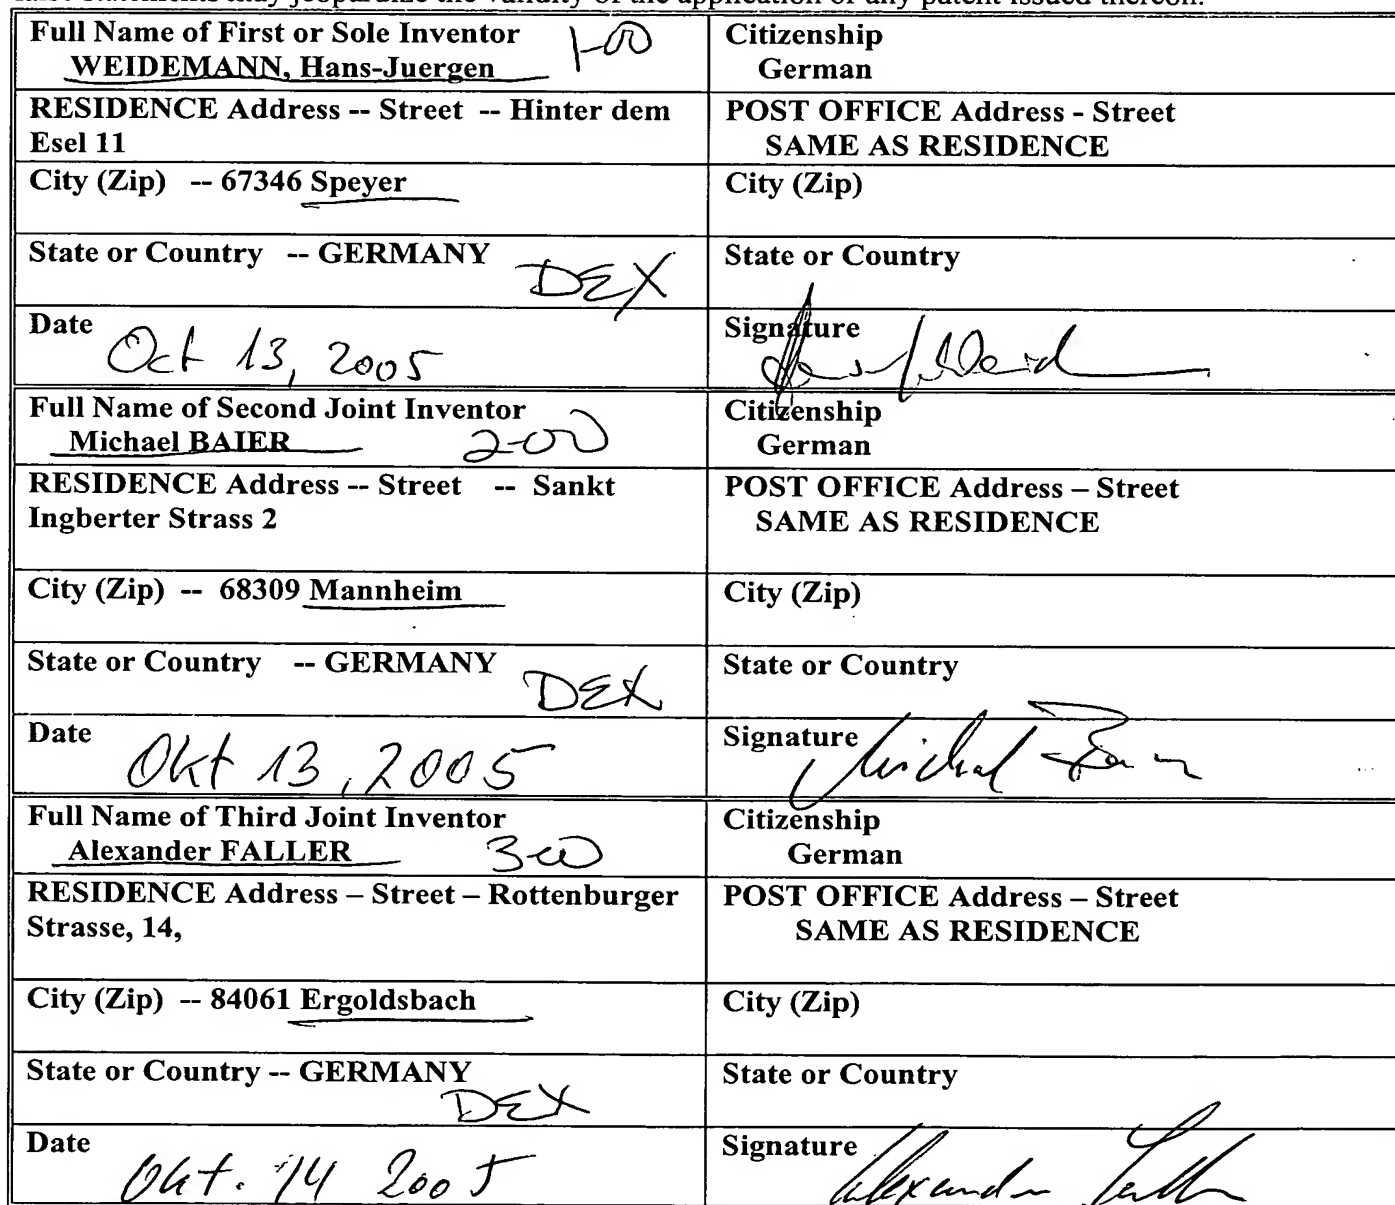 false statements may jeopardize the validity of the application or any patent issued thereon.
Full Name of First or Sole Inventor 1-00
WEIDEMANN, Hans-Juergen
Citizenship
German
RESIDENCE Address -- Street -- Hinter dem
Esel 11
POST OFFICE Address - Street
SAME AS RESIDENCE
City (Zip) -- 67346 Speyer
City (Zip)
State or Country -- GERMANY DEX
State or Country
Date Oct 13, 2005
Signature
Full Name of Second Joint Inventor
Michael BAIER 2-00
Citizenship
German
RESIDENCE Address -- Street -- Sankt
Ingberter Strass 2
POST OFFICE Address – Street
SAME AS RESIDENCE
City (Zip) -- 68309 Mannheim
City (Zip)
State or Country -- GERMANY DEX
State or Country
Date Okt 13, 2005
Signature Michael
Full Name of Third Joint Inventor
Alexander FALLER 3-00
Citizenship
German
RESIDENCE Address – Street – Rottenburger
Strasse, 14,
POST OFFICE Address – Street
SAME AS RESIDENCE
City (Zip) -- 84061 Ergoldsbach
City (Zip)
State or Country -- GERMANY
DEX
State or Country
Date Okt. 14 2005
Signature Alexander Faller